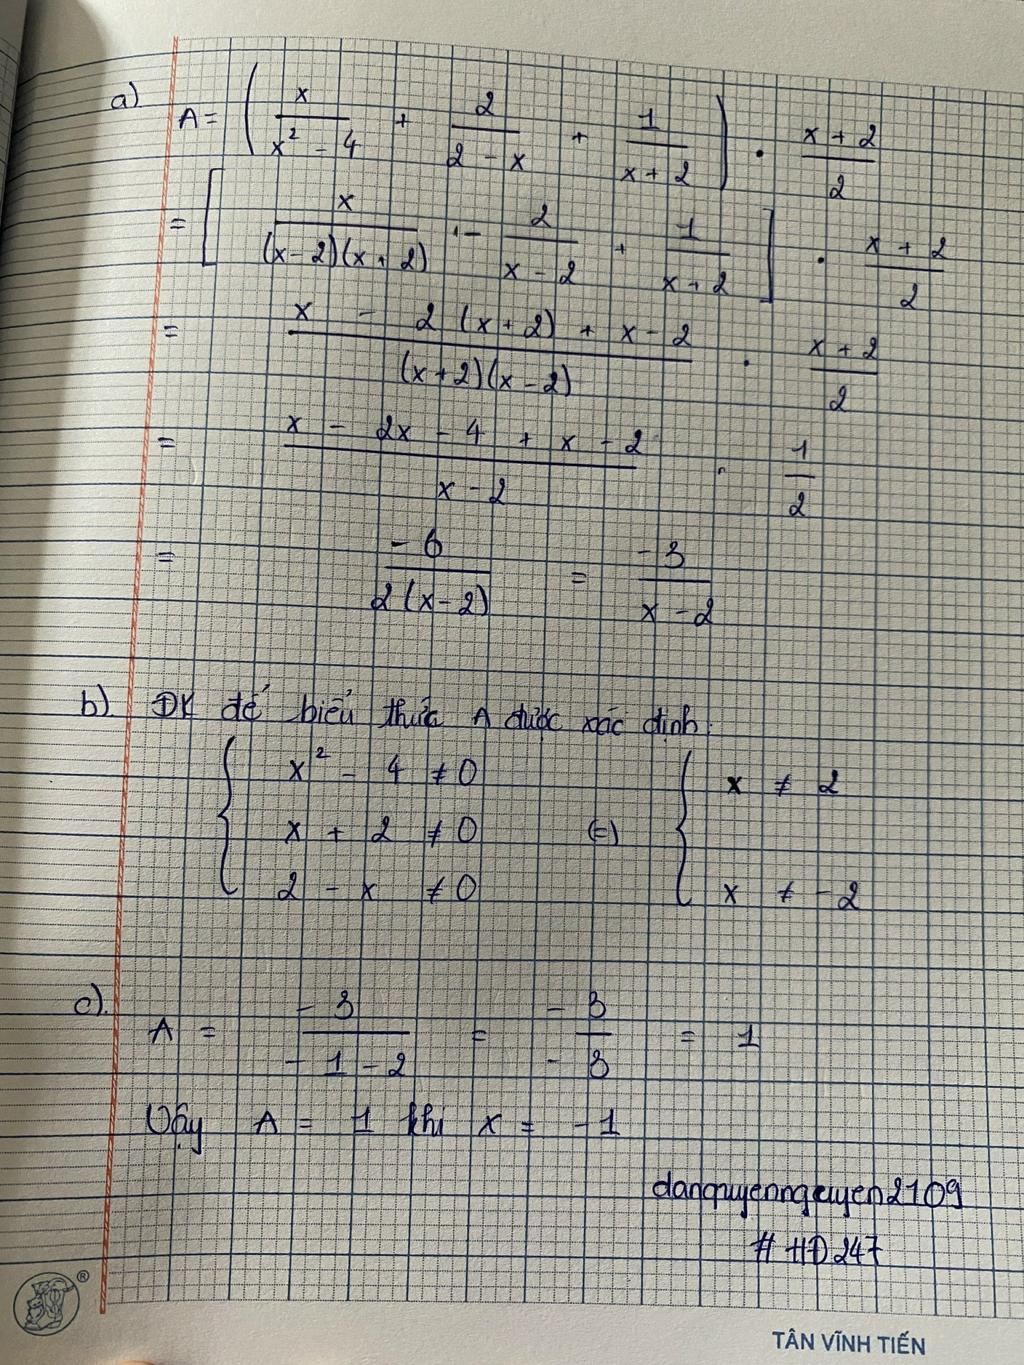 a) A = ( x/(x² - 4) + 2/(2 - x) + 1/(x + 2) ) . (x + 2)/2
= [ x/((x - 2)(x + 2)) - 2/(x - 2) + 1/(x + 2) ] . (x + 2)/2
= (x - 2(x + 2) + x - 2)/((x + 2)(x - 2)) . (x + 2)/2
= (x - 2x - 4 + x - 2)/(x - 2) . 1/2
= -6/(2(x - 2)) = -3/(x - 2)
b). ĐK để biểu thức A được xác định:
{ x² - 4 ≠ 0
x + 2 ≠ 0
2 - x ≠ 0 (=) { x ≠ 2
x ≠ -2
c). A = -3/(-1 - 2) = -3/-3 = 1
Vậy A = 1 khi x = -1
danquyennguyen2109
# HĐ247
®
TÂN VĨNH TIẾN